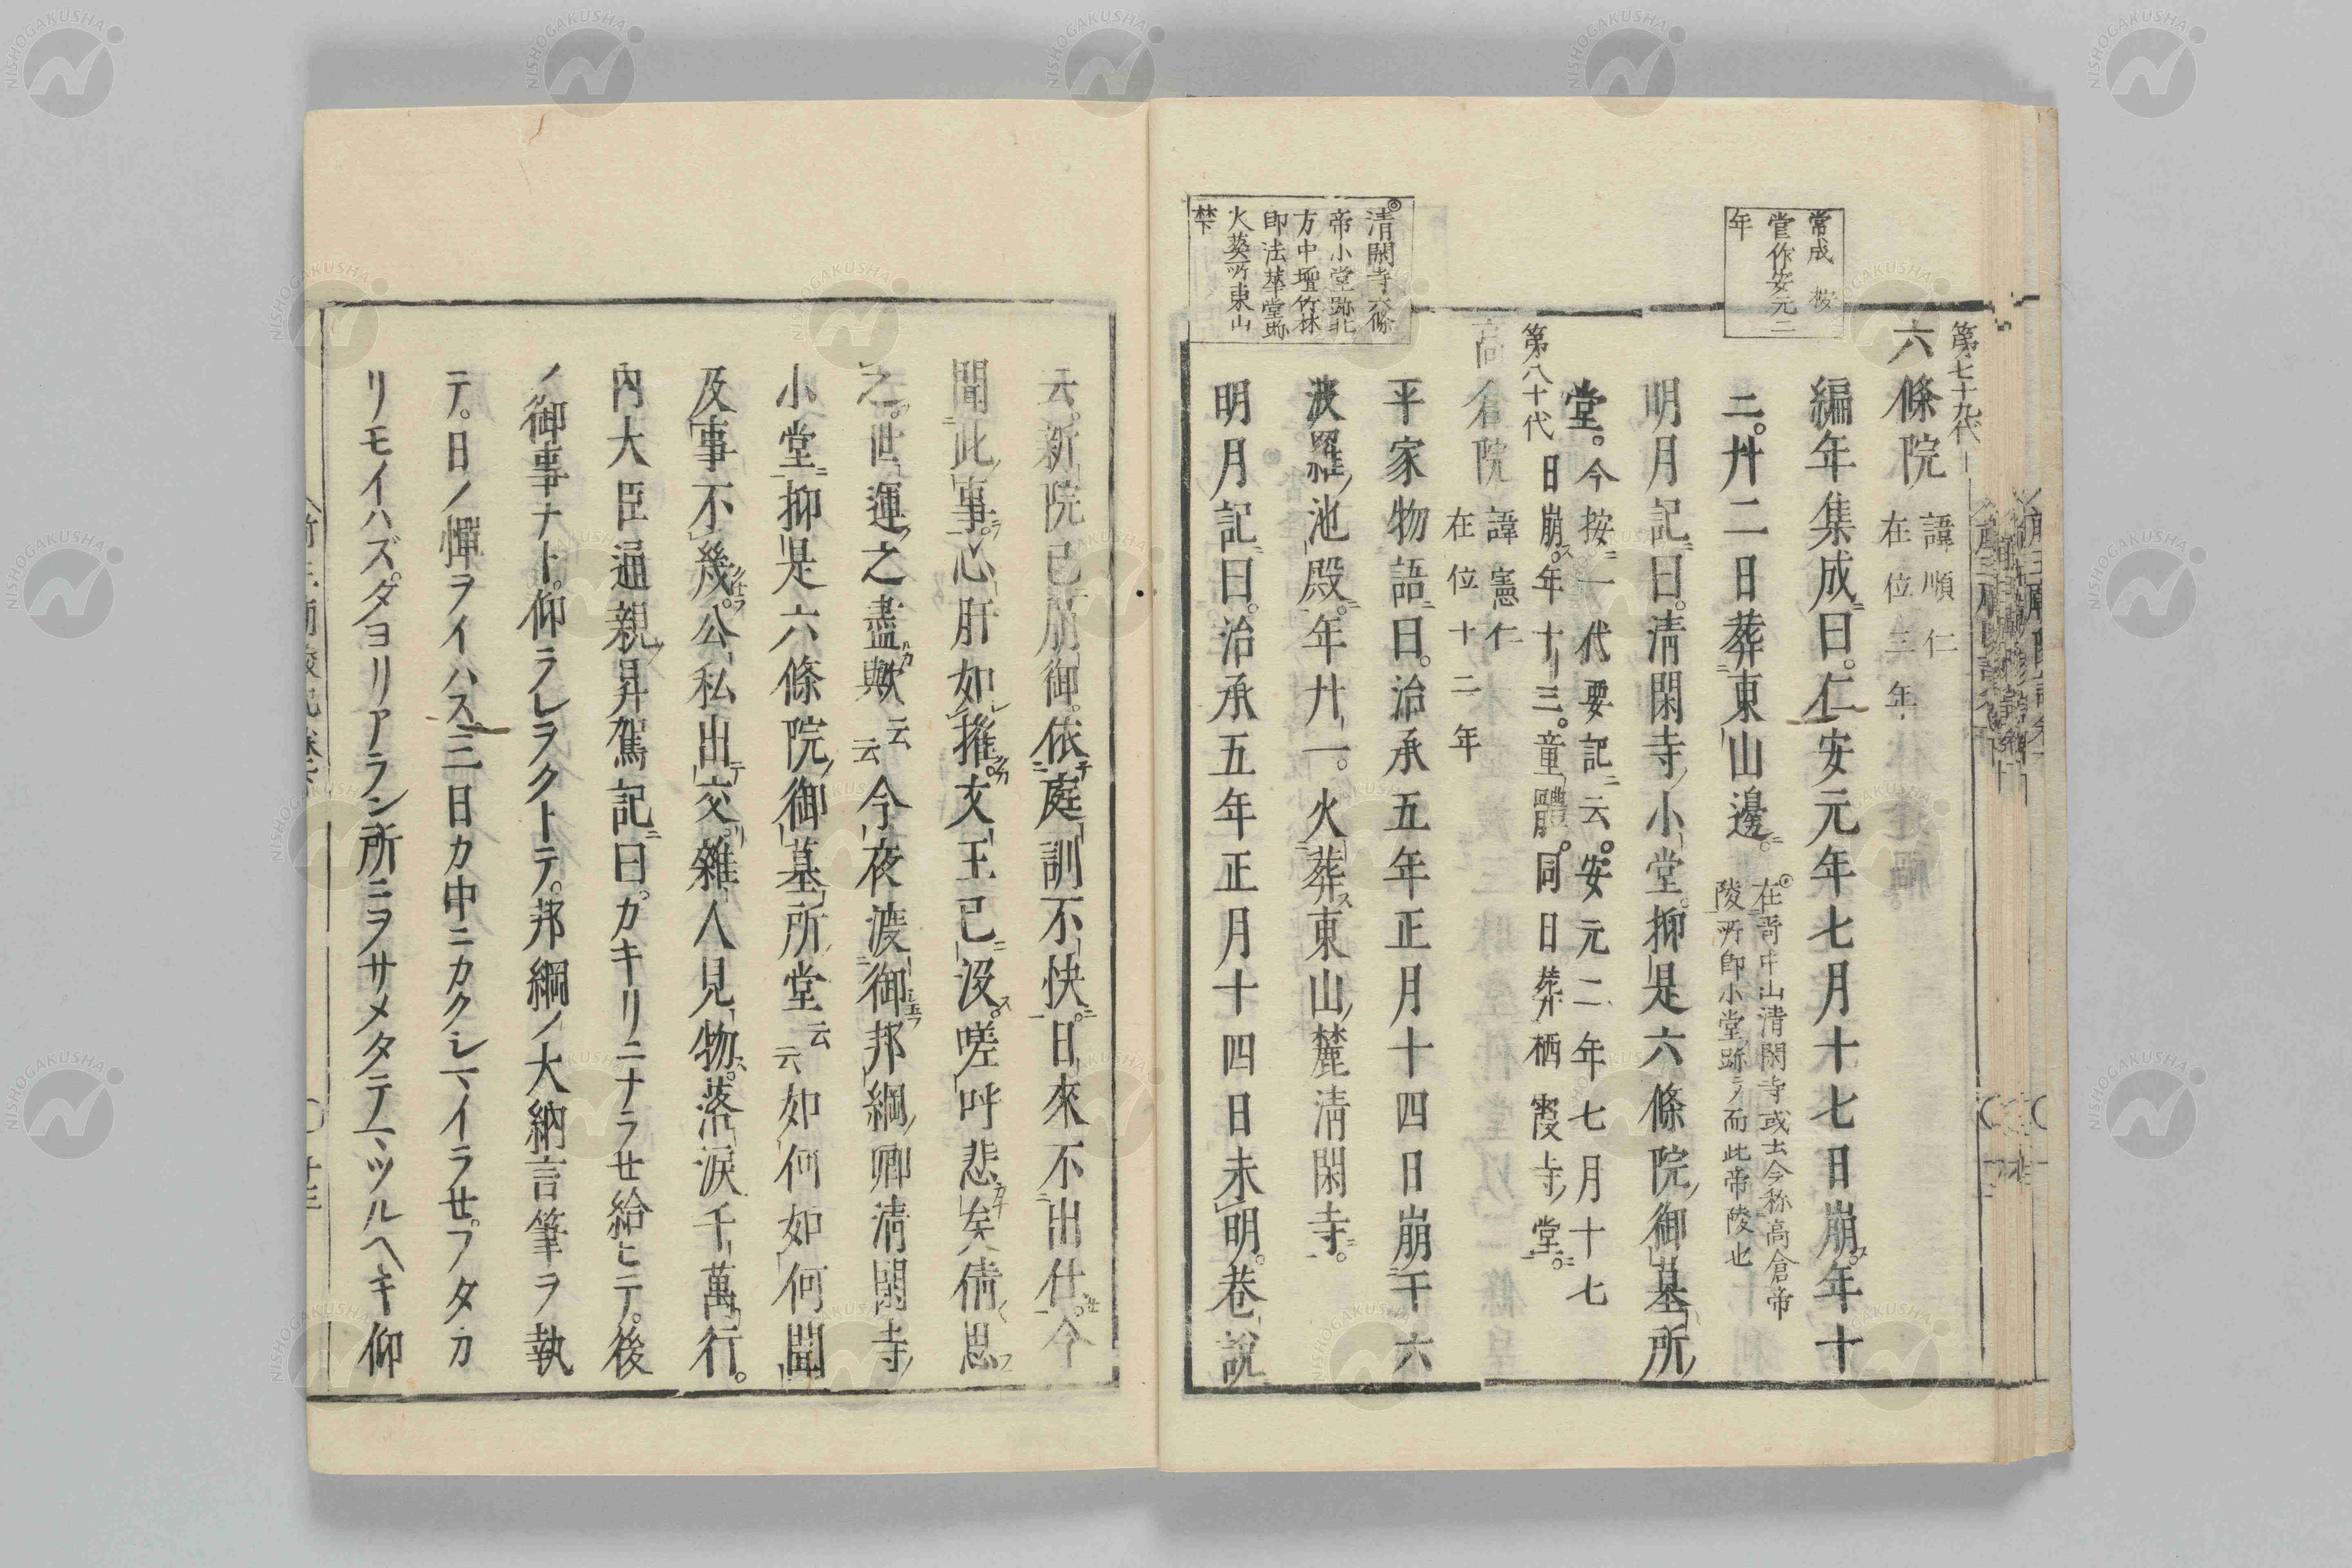 常成 按
當作安元二
年
清閑寺六條
帝小堂跡北
方中壇竹林
即法華堂跡
火葬所東山
林下
第七十九代
六條院 諱順仁
在位三年
編年集成ニ曰。仁安元年七月十七日崩ス。年十
二。廿二日葬東山邊ニ。
在歌中山清閑寺或云今称高倉帝
陵所即小堂跡ヲ而此帝陵也
明月記ニ曰。清閑寺ノ小堂。抑是六條院ノ御墓所ノ
堂。今按ニ一代要記ニ云。安元二年七月十七
日崩ス。年十三。童體。同日葬栖霞寺ノ堂ニ。
第八十代
高倉院 諱憲仁
在位十二年
平家物語ニ曰。治承五年正月十四日崩于六
波羅ノ池殿ニ。年廿一。火葬ス東山ノ麓清閑寺ニ。
明月記ニ曰。治承五年正月十四日未明。巷說
云。新院已崩御。依庭訓不快。日來不出仕。今
聞此事。心肝如摧。文王已沒ス。嗟呼悲矣。倩思
之。世運之盡歟云云。今夜渡御邦綱ノ卿清閑寺ノ
小堂。抑是六條院ノ御墓所ノ堂云云。如何如何。聞
及事不幾。公私出交雜人見物ス。落淚千萬行。
內大臣通親ノ昇霞記ニ曰。カキリニナラせ給ヒテ。後
ノ御事ナト。仰ラレヲクトテ。邦綱ノ大納言筆ヲ執
テ。日ノ憚ヲイハス。三日カ中ニカクシマイラせプタカ
リモイハズ。タヨリアラン所ニヲサメタテマツルヘキ仰
NISHOGAKUSHA